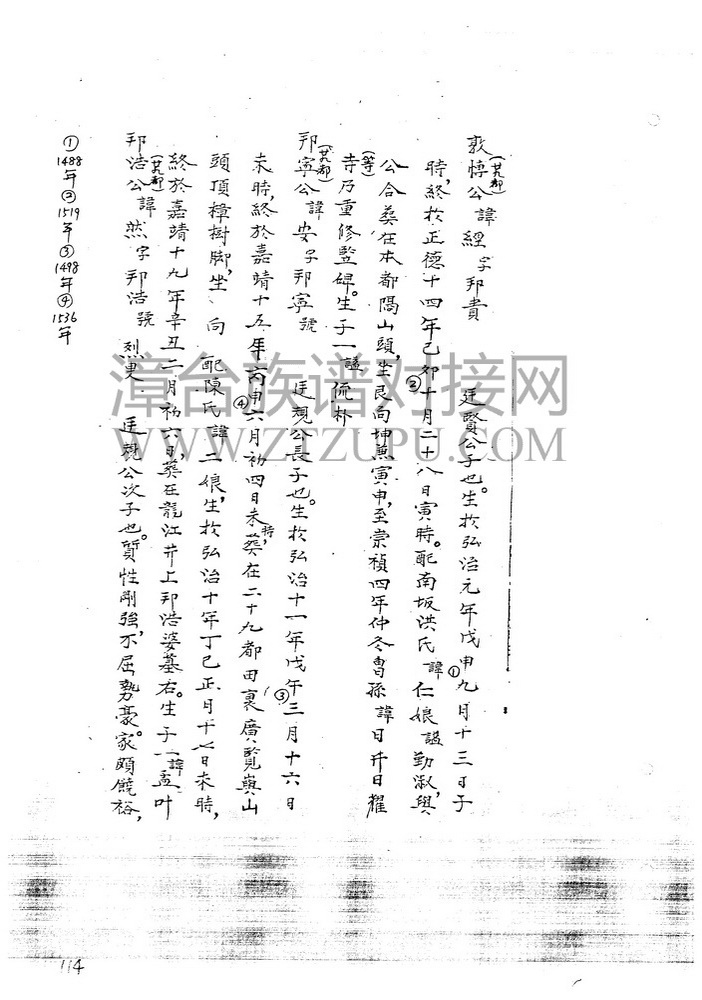 敦惇公諱經字邦貴 廷賢公子也。生於弘治元年戊申①九月十三日子
時,終於正德十四年己卯②十月二十八日寅時。配南坂洪氏諱仁娘謚勤淑,與
公合葬在本都隔山頭,坐艮向坤兼寅申,至崇禎四年仲冬曹孫諱日升日耀
(等)寺乃重修豎碑。生子一謚侃朴
邦寧公諱安字邦寧號 廷觀公長子也。生於弘治十一年戊午③三月十六日
未時,終於嘉靖十五年丙申④六月初四日未時,葬在二十九都田裏廣覽輿山
頭頂樟樹脚,坐 向 配陳氏諱二娘,生於弘治十年丁巳正月十七日未時,
終於嘉靖十九年辛丑二月初六日,葬在龍江井上邦浩婆墓右。生子一諱孟叶
邦浩公諱然字邦浩號 烈叟 廷觀公次子也。質性剛強,不屈勢豪。家頗饒裕,
①1488年②1519年③1498年④1536年
漳台族谱对接网
WWW.ZTZUPU.COM
114